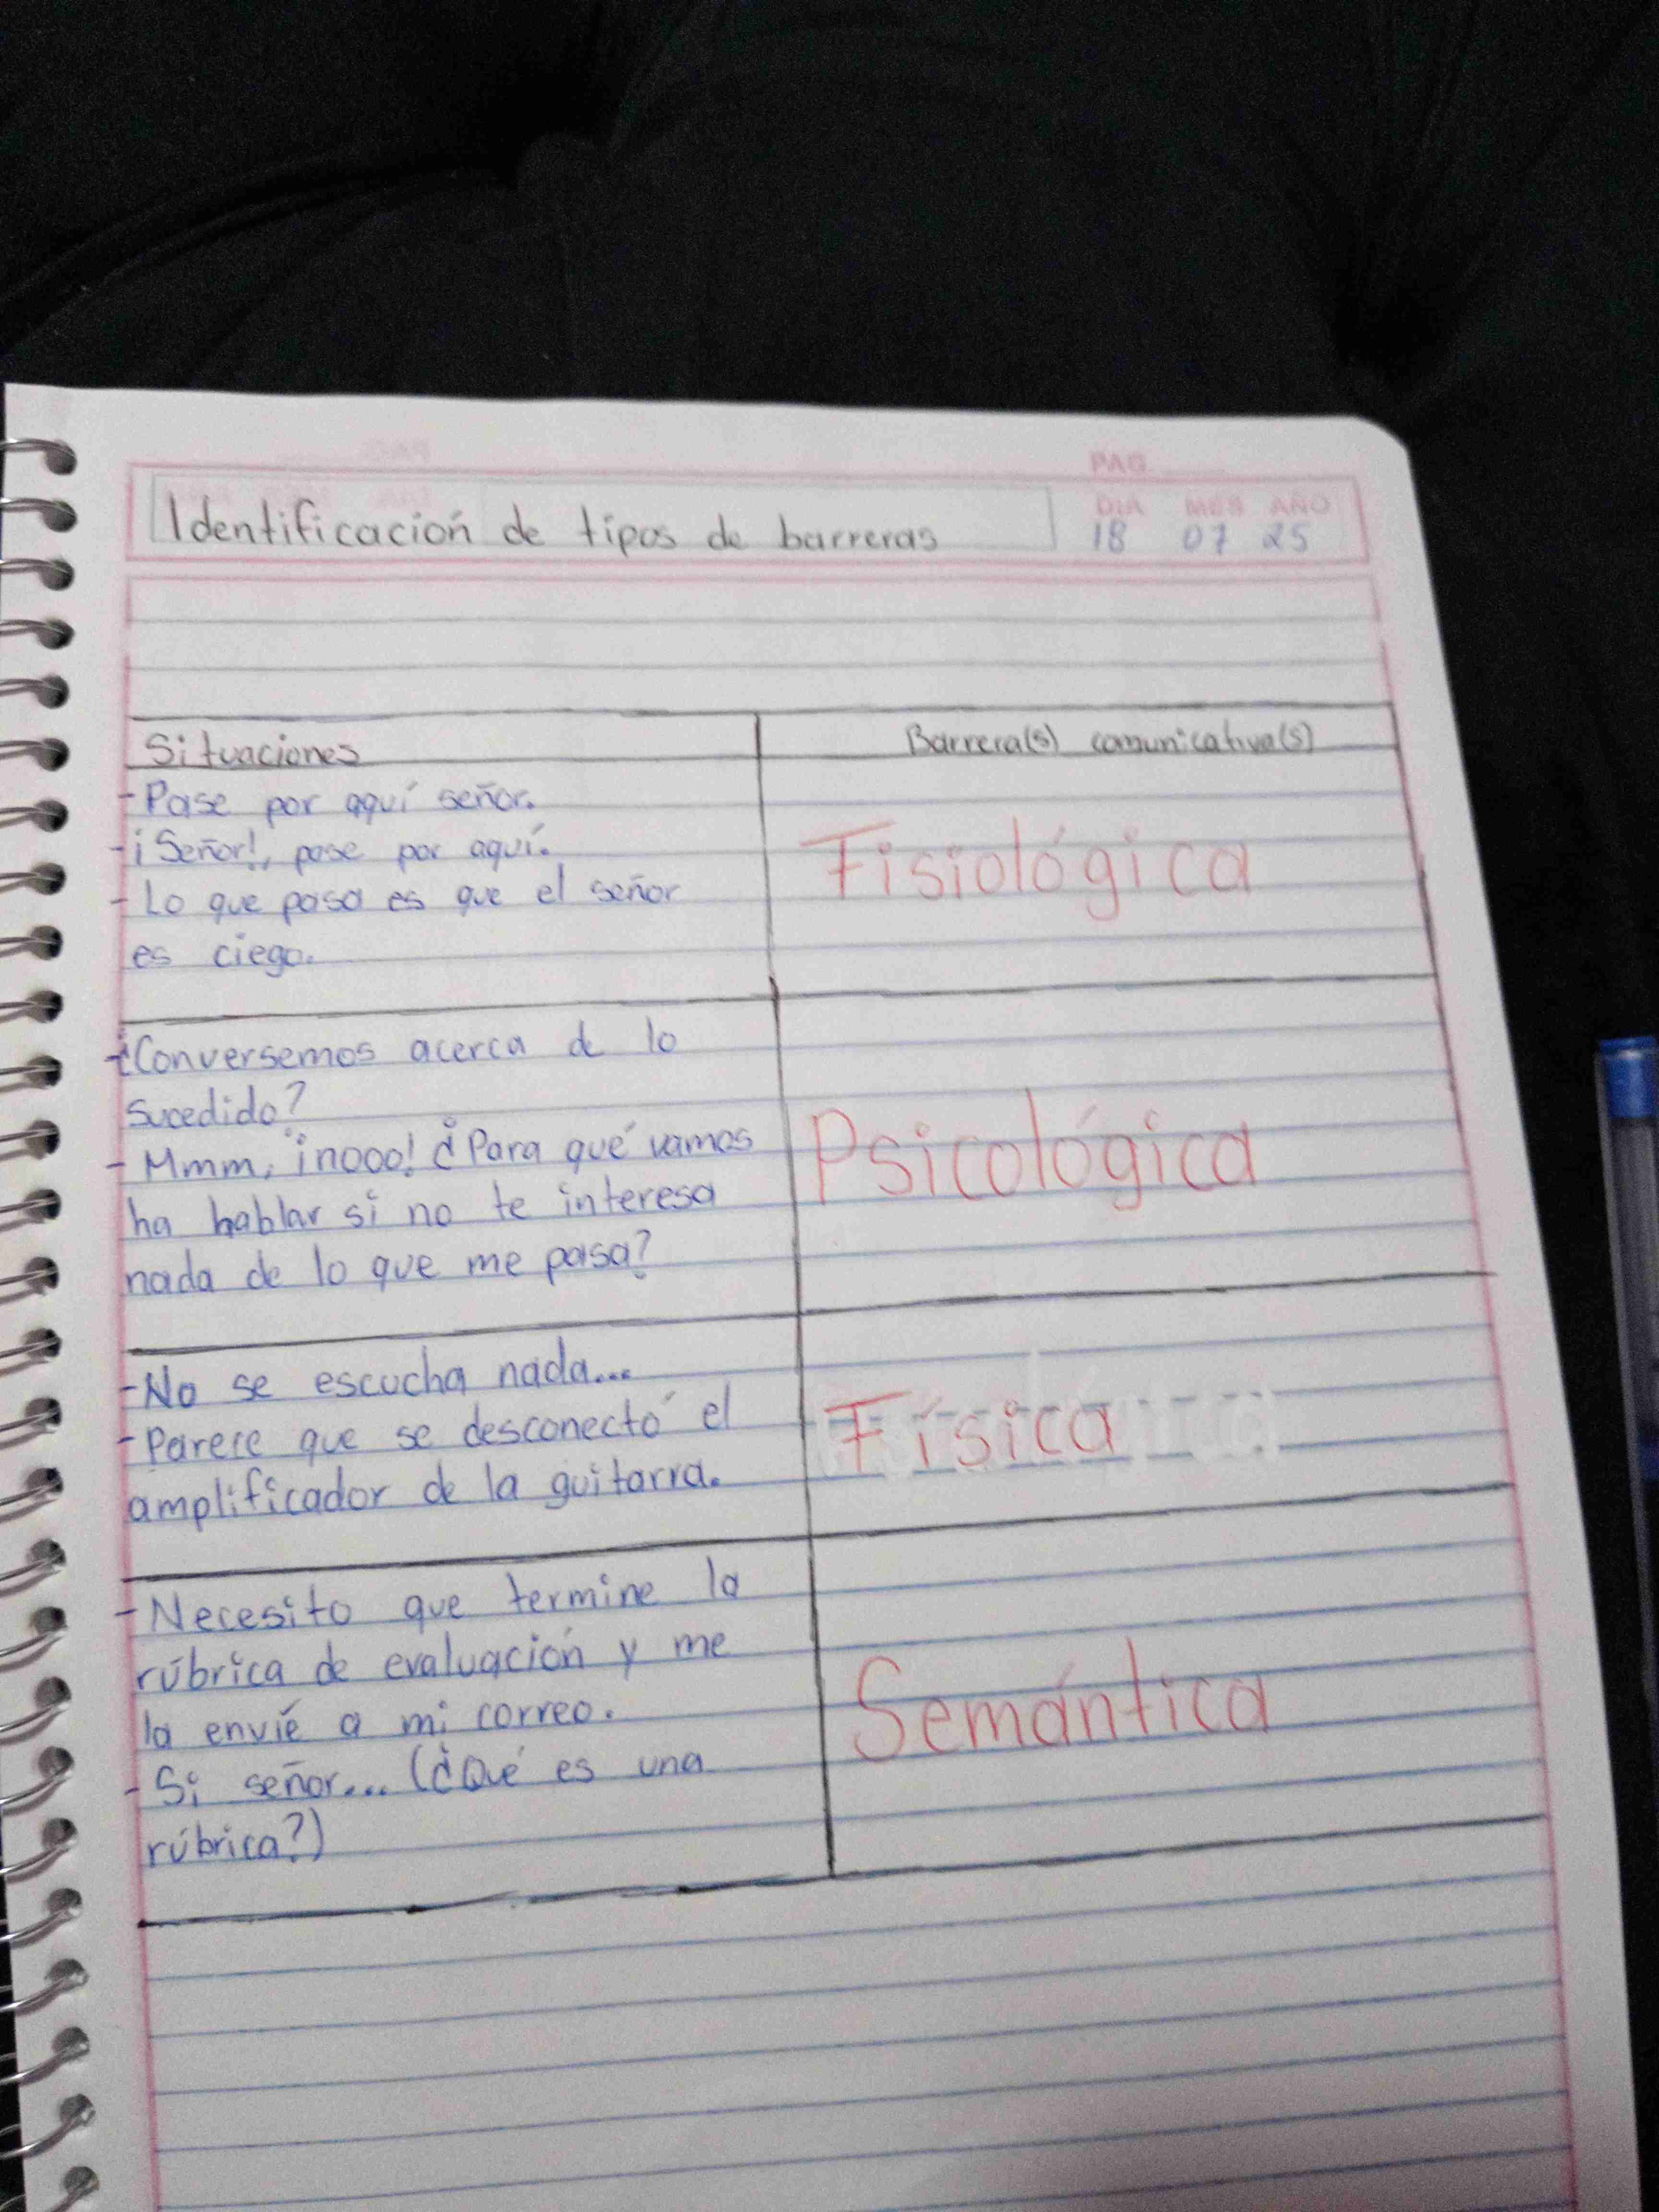 PAG.
Identificación de tipos de barreras
DIA MES AÑO
18 07 25
Situaciones
Barrera(s) comunicativa(s)
- Pase por aquí señor.
- ¡Señor!, pase por aquí.
- Lo que pasa es que el señor
es ciego.
Fisiológica
- ¿Conversemos acerca de lo
sucedido?
- Mmm, ¡nooo! ¿Para qué vamos
ha hablar si no te interesa
nada de lo que me pasa?
Psicológica
- No se escucha nada...
- Parece que se desconectó el
amplificador de la guitarra.
Física
- Necesito que termine la
rúbrica de evaluación y me
la envíe a mi correo.
- Si señor... (¿Qué es una
rúbrica?)
Semántica